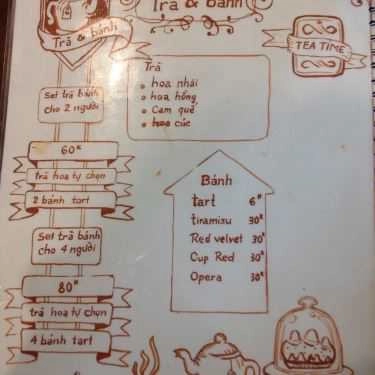 Trà & bánh
Trà & bánh
TEA TIME
Set trà bánh
cho 2 người
60K
trà hoa tự chọn
2 bánh tart
Set trà bánh
cho 4 người
80K
trà hoa tự chọn
4 bánh tart
Trà
hoa nhài
hoa hồng
Cam quế
hoa cúc
Bánh
tart 6K
tiramisu 30K
Red velvet 30K
Cup Red 30K
Opera 30K